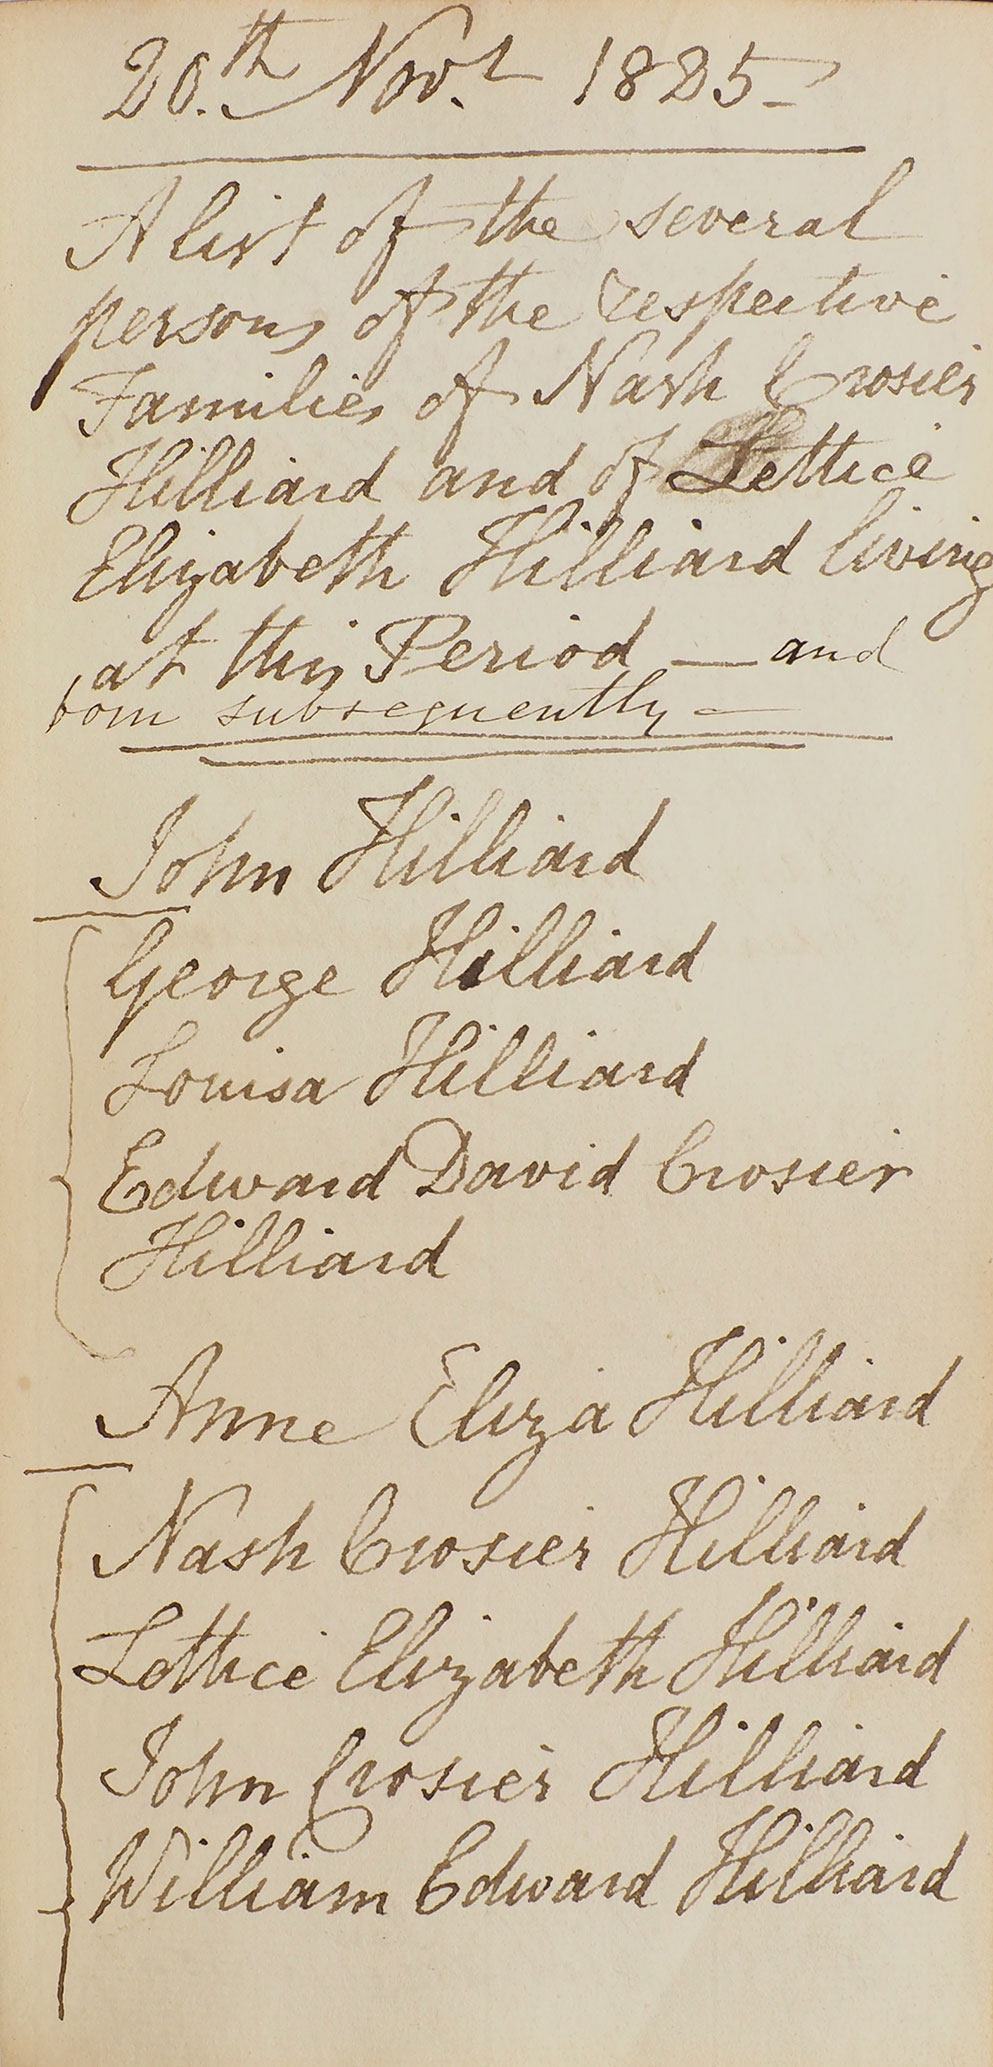 20.th Novr. 1825
A list of the several
persons of the respective
Families of Nash Crosier
Hilliard and of Lettice
Elizabeth Hilliard living
at this Period — and
born subsequently —
John Hilliard
George Hilliard
Louisa Hilliard
Edward David Crosier
Hilliard
Anne Eliza Hilliard
Nash Crosier Hilliard
Lettice Elizabeth Hilliard
John Crosier Hilliard
William Edward Hilliard